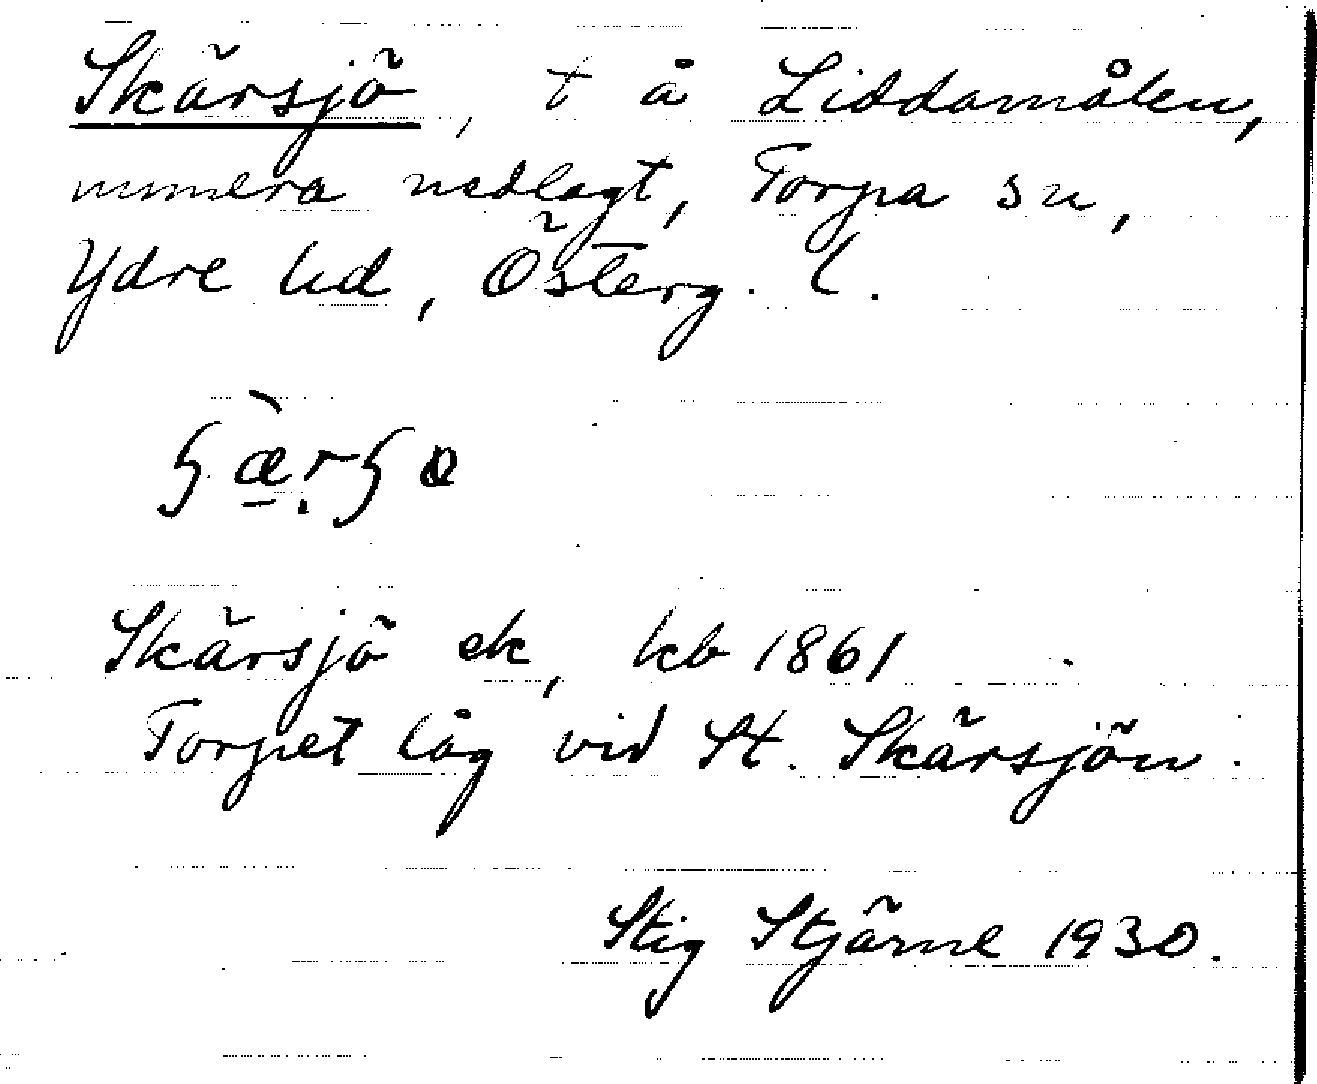 Skärsjö, t å Liddamålen,
numera nedlagt, Torpa sn,
Ydre hd, Österg. l.
ʃæ̀rʃø
Skärsjö ek, kb 1861
Torpet låg vid St. Skärsjön.
Stig Stjärne 1930.